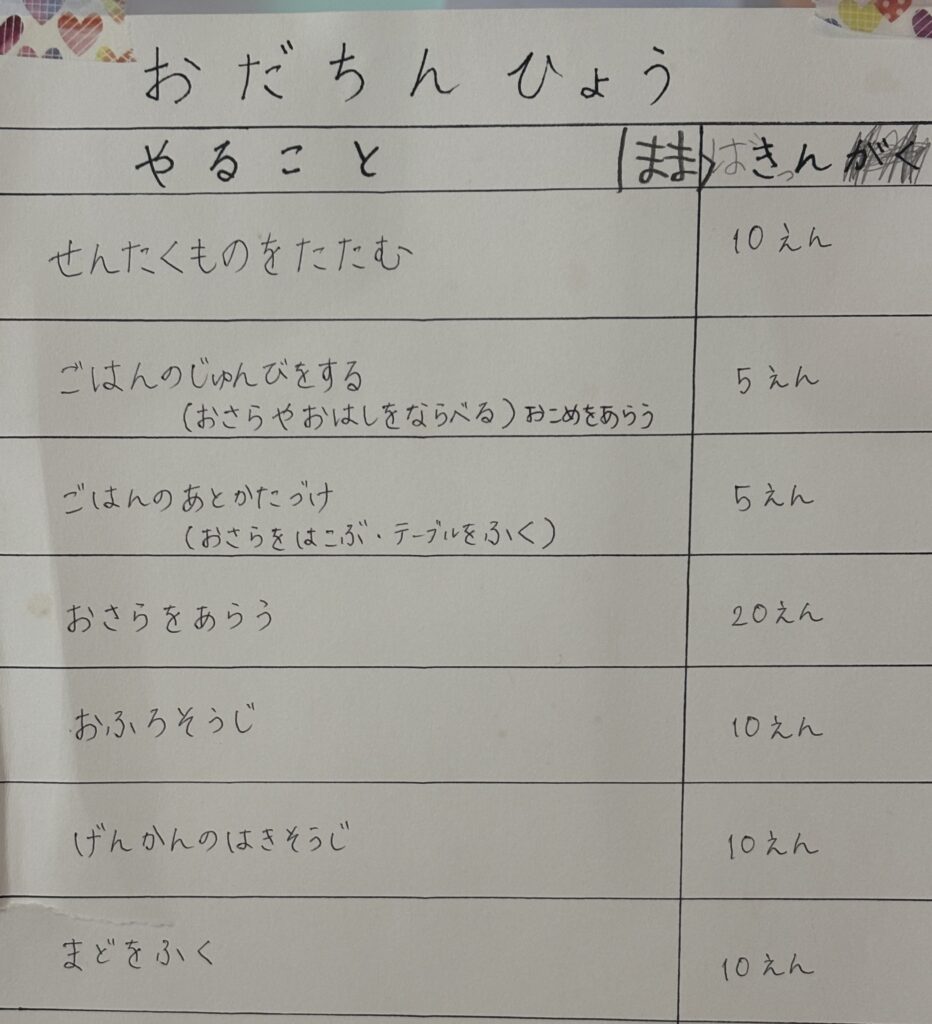 おだちんひょう
やること まま ばきっんがく
せんたくものをたたむ 10えん
ごはんのじゅんびをする 5えん
(おさらやおはしをならべる)おこめをあらう
ごはんのあとかたづけ 5えん
(おさらをはこぶ・テーブルをふく)
おさらをあらう 20えん
おふろそうじ 10えん
げんかんのはきそうじ 10えん
まどをふく 10えん